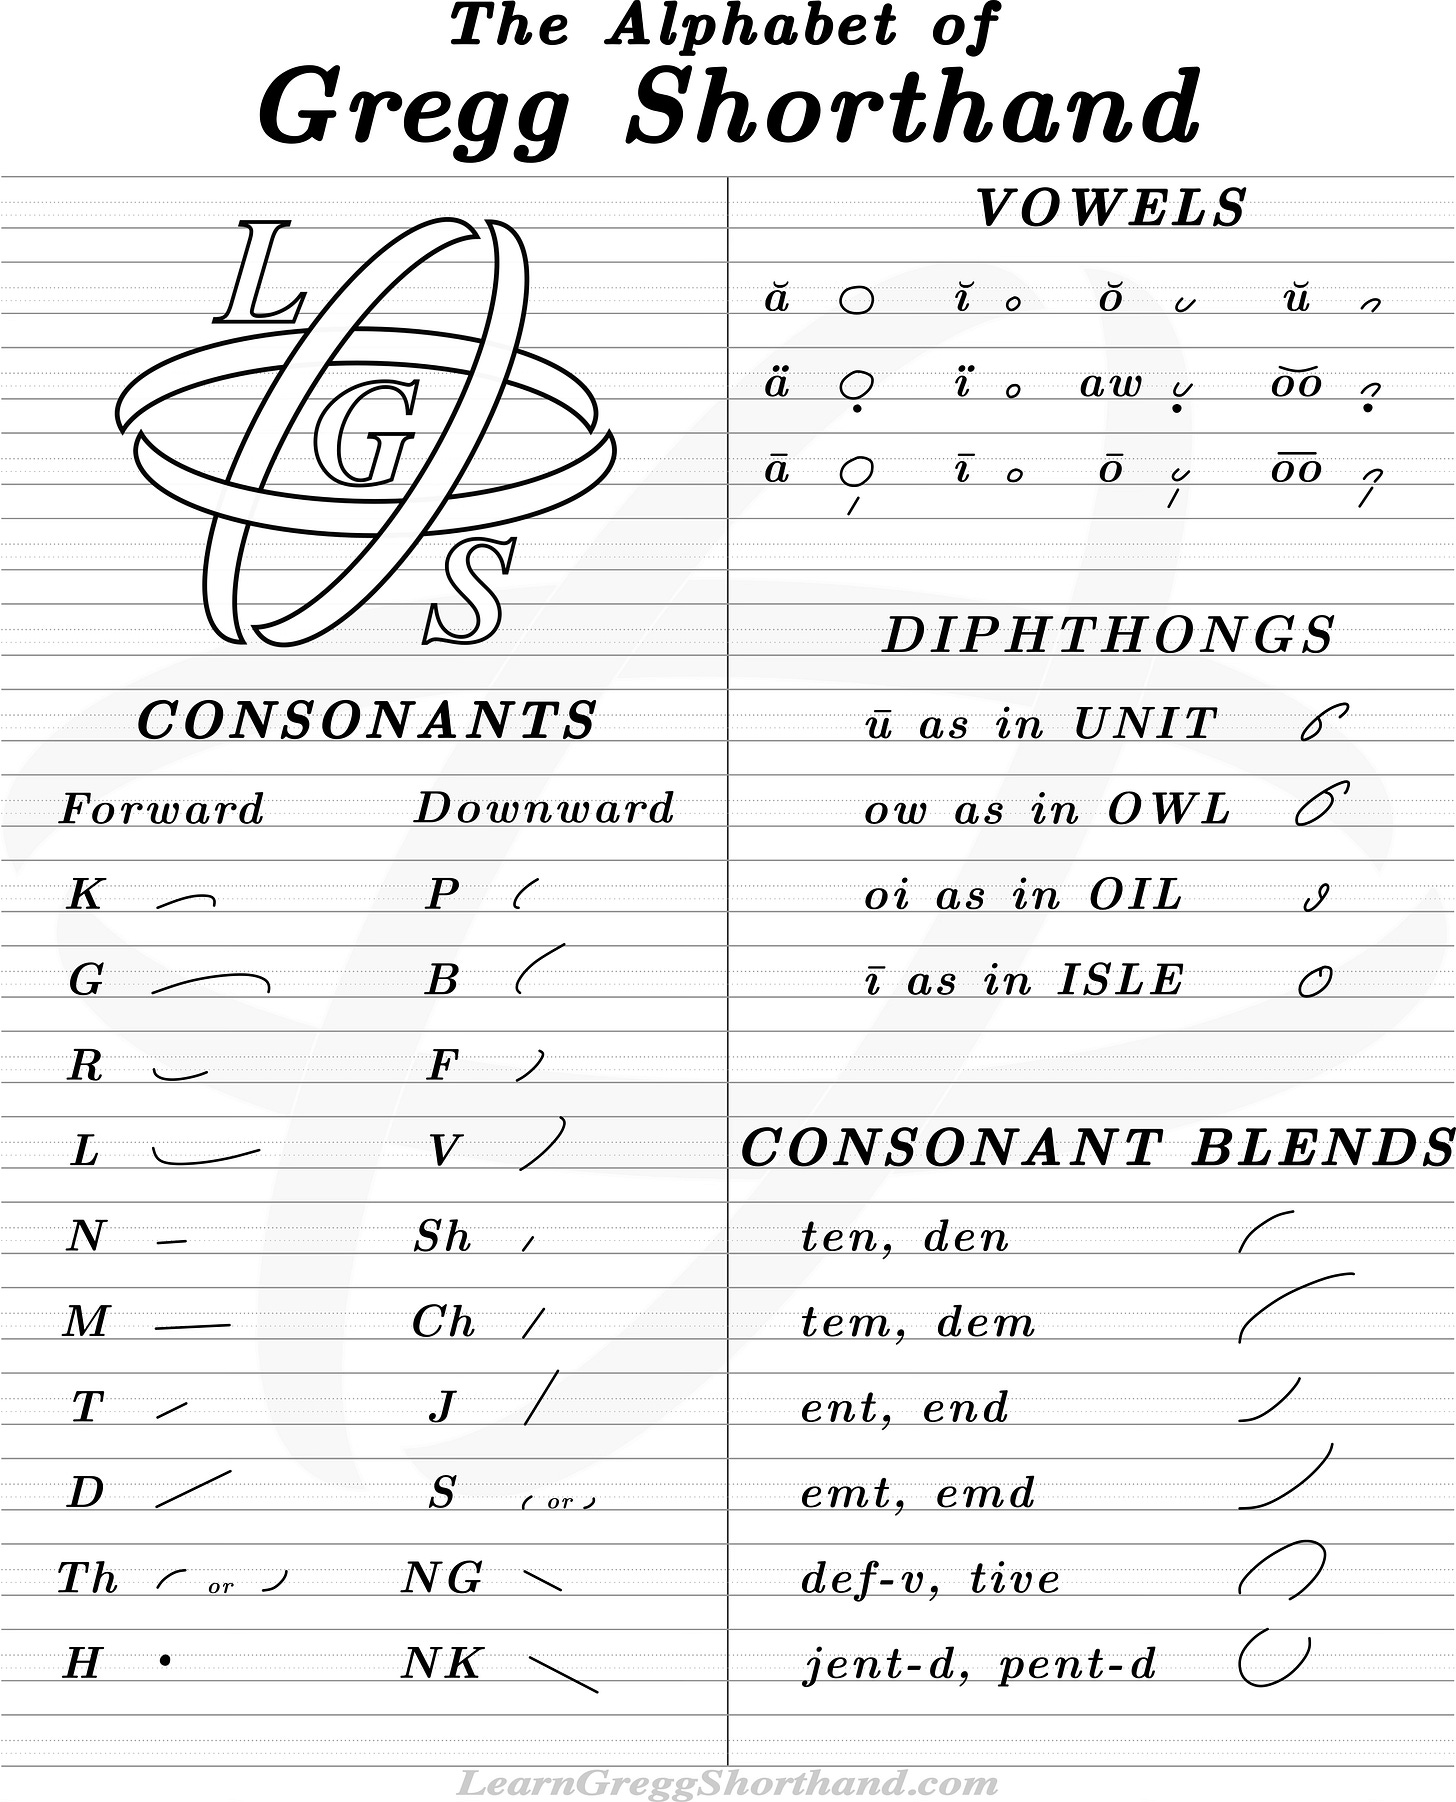 The Alphabet of
Gregg Shorthand
L
G
S
CONSONANTS
Forward Downward
K P
G B
R F
L V
N Sh
M Ch
T J
D S or
Th or NG
H NK
VOWELS
ă ĭ ŏ ŭ
ä ï aw o͝o
ā ī ō o͞o
DIPHTHONGS
ū as in UNIT
ow as in OWL
oi as in OIL
ī as in ISLE
CONSONANT BLENDS
ten, den
tem, dem
ent, end
emt, emd
def-v, tive
jent-d, pent-d
LearnGreggShorthand.com